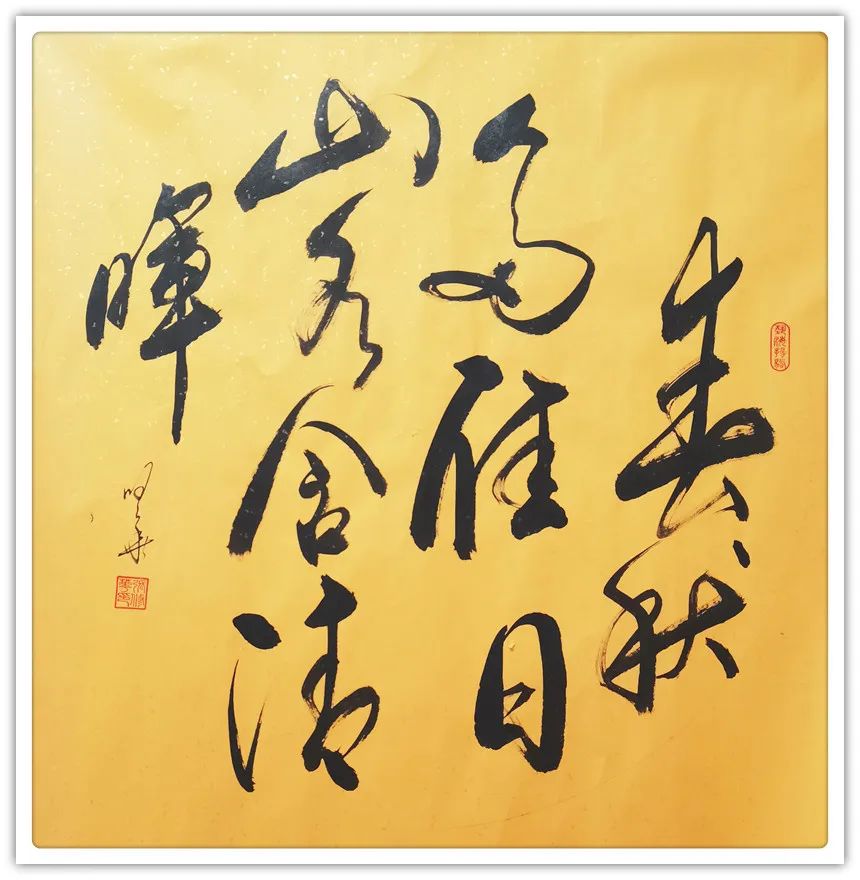 春秋
多佳日
山水含清
暉